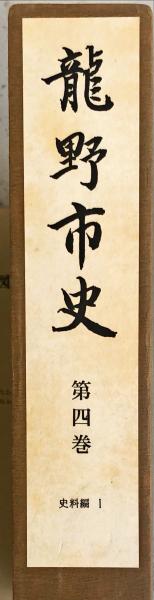 龍野市史
第四巻
史料編 1